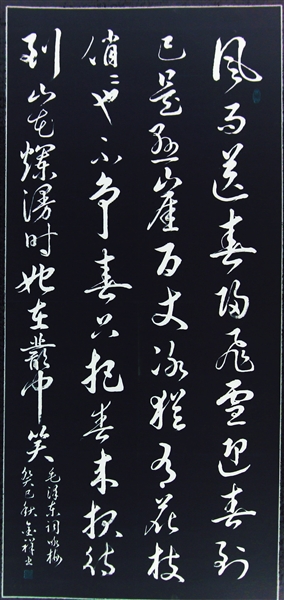 风雨送春归飞雪迎春到
已是悬崖百丈冰犹有花枝
俏俏也不争春只把春来报待
到山花烂漫时她在丛中笑
毛泽东词咏梅
癸巳秋金祥书